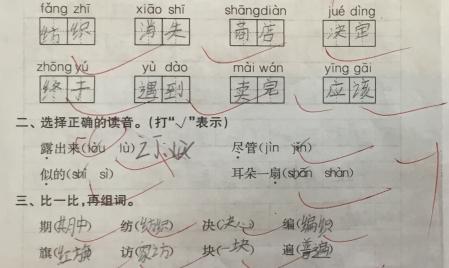 fǎng zhī xiāo shī shāngdiàn jué dìng
纺织 消失 商店 决定
zhōng yú yù dào mài wán yīng gāi
终于 遇到 卖完 应该
二、选择正确的读音。(打“√”表示)
露出来(lòu lù) 尽管(jìn jǐn)
似的(shì sì) 耳朵一扇(shān shàn)
三、比一比,再组词。
期(期中) 纺(纺织) 决(决心) 编(编织)
旗(红旗) 访(家访) 块(一块) 遍(普遍)